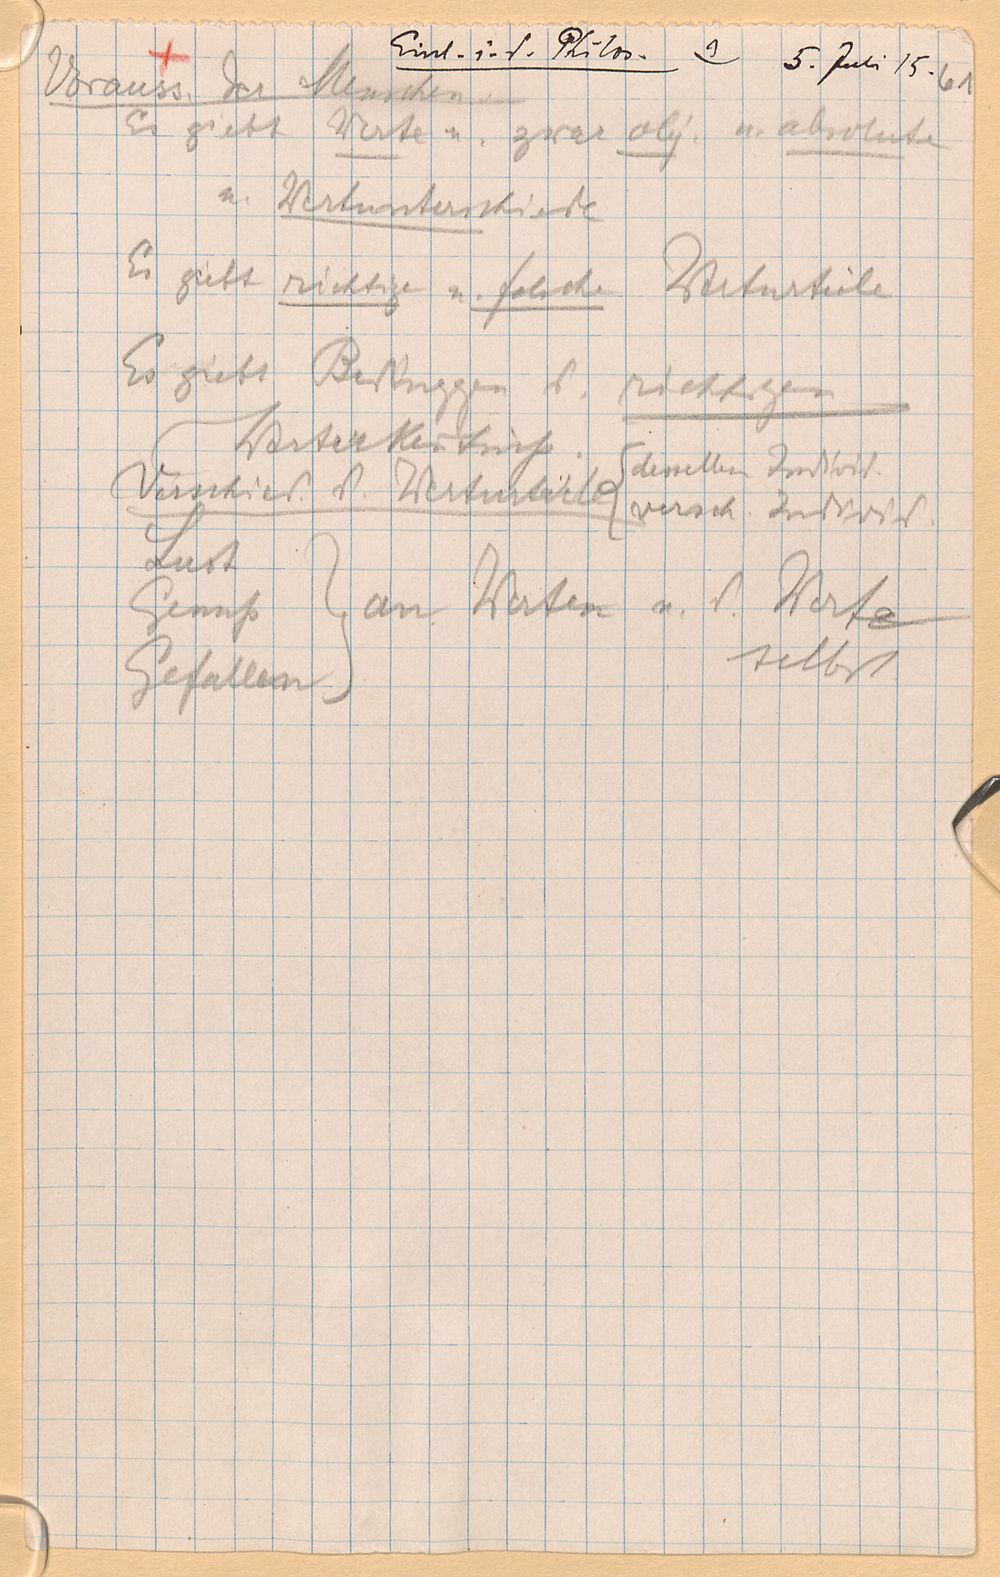 Einl. i. d. Philos. 1 5. Juli 15. 61
Vorauss. der Menschen
Es giebt Werte u. zwar obj. u. absolute
u. Wertunterschiede
Es giebt richtige u. falsche Werturteile
Es giebt Bedinggen d. richtigen
Verschied. d. Werturteile
desselben Individ.
versch. Individ.
Lust
Genuß
Gefallen
an Werten u. d. Werte
selbst